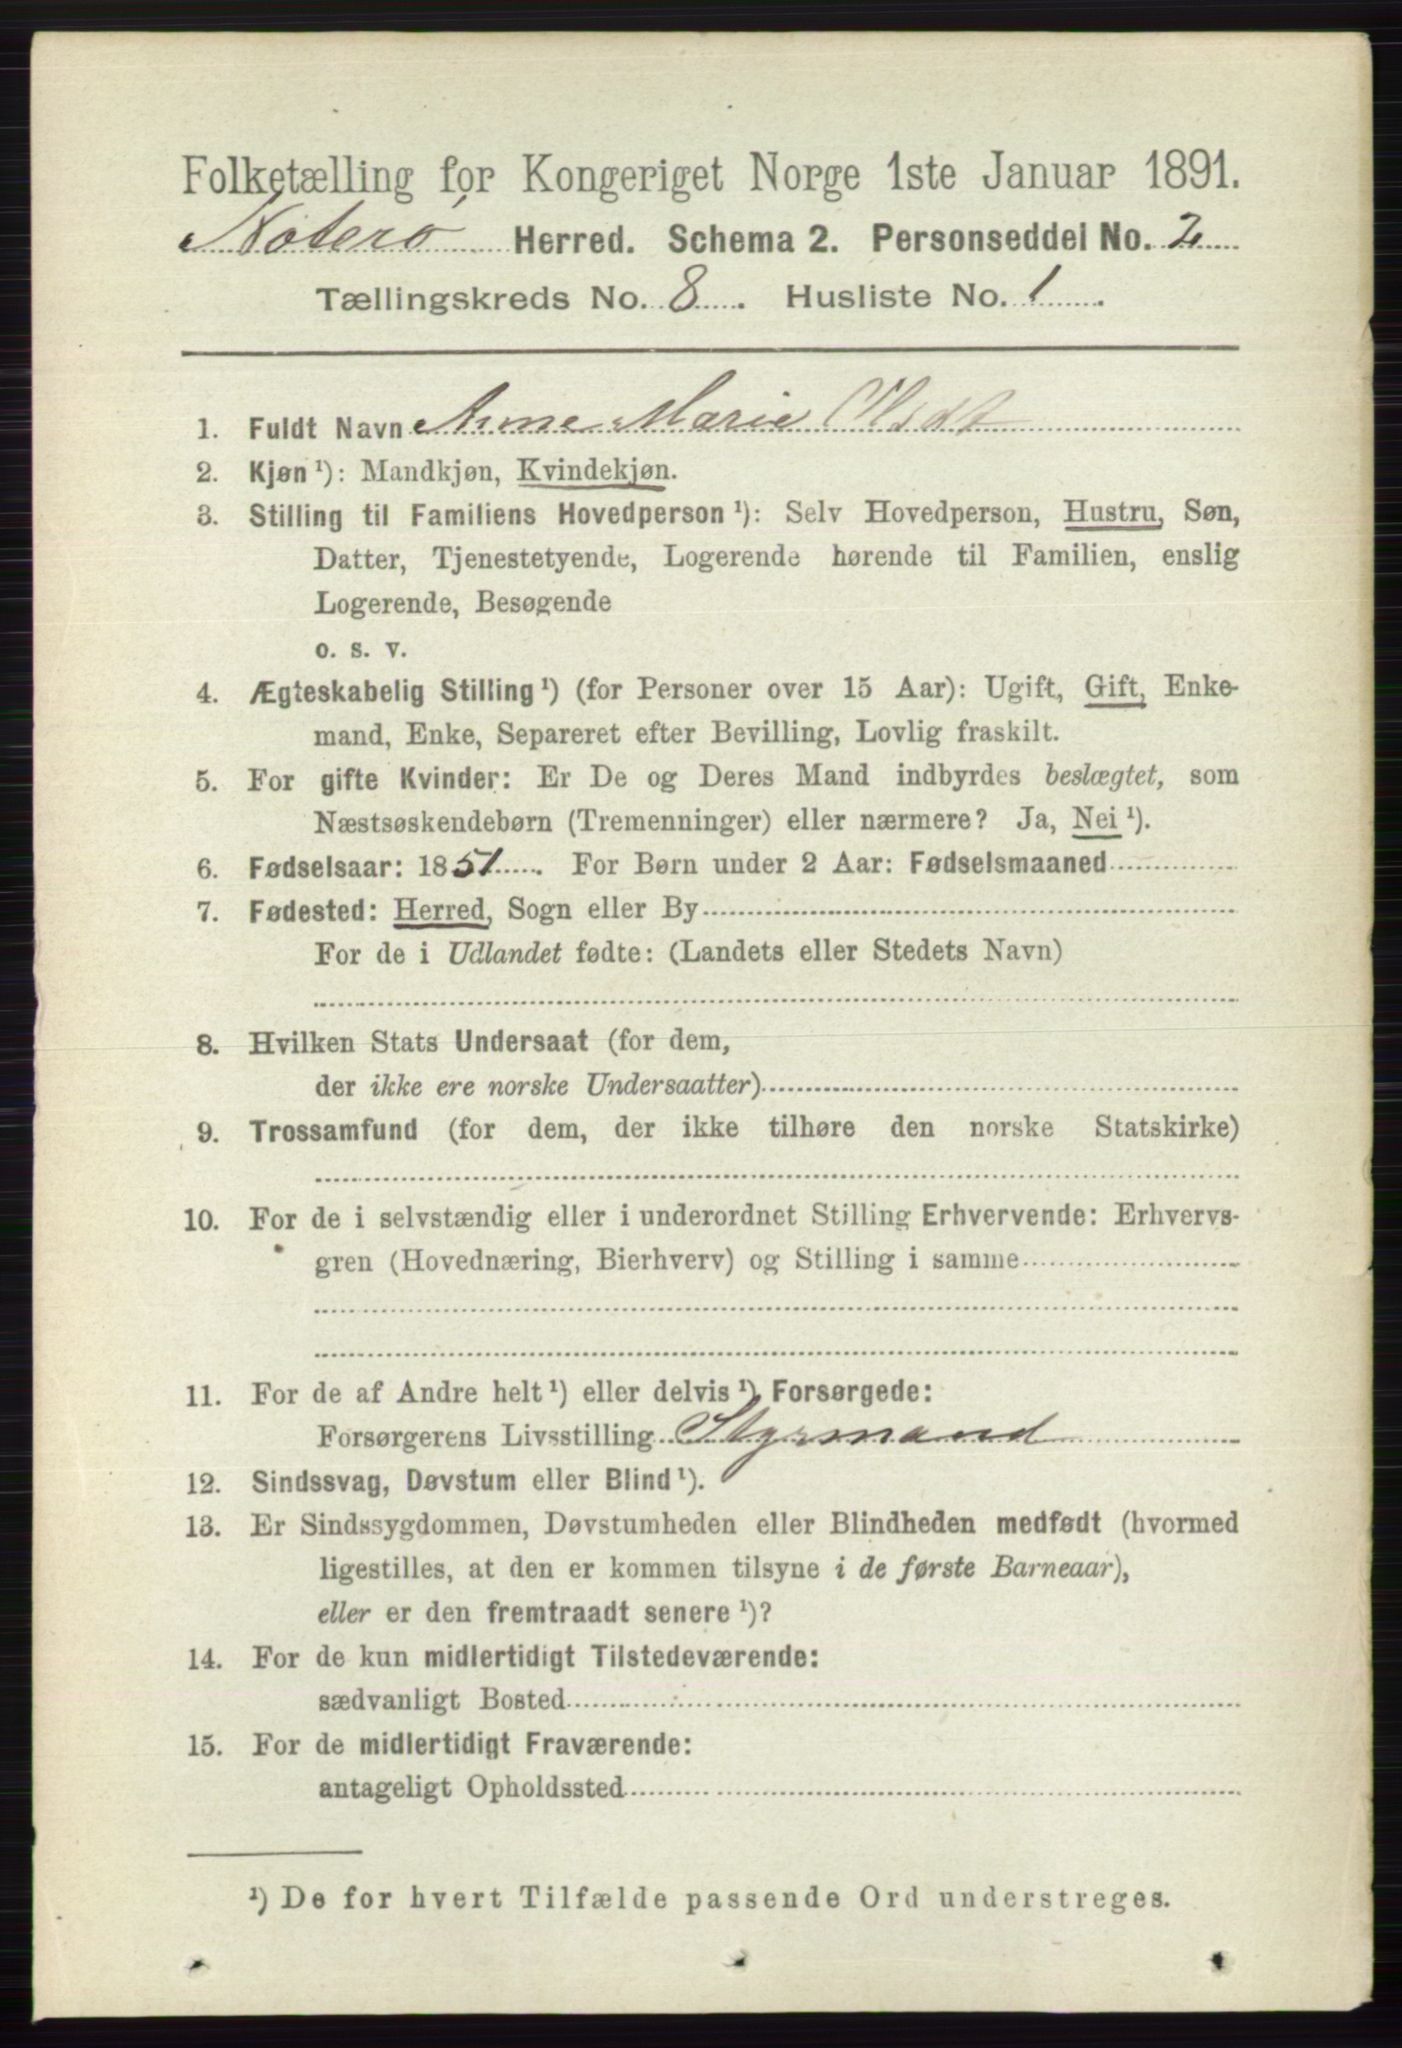 Folketælling for Kongeriget Norge 1ste Januar 1891.
Nøterø Herred. Schema 2. Personseddel No. 2
Tællingskreds No. 8. Husliste No. 1.
1. Fuldt Navn Anne Marie Olsdt
2. Kjøn ¹): Mandkjøn, Kvindekjøn.
3. Stilling til Familiens Hovedperson ¹): Selv Hovedperson, Hustru, Søn,
Datter, Tjenestetyende, Logerende hørende til Familien, enslig
Logerende, Besøgende
o. s. v.
4. Ægteskabelig Stilling ¹) (for Personer over 15 Aar): Ugift, Gift, Enke-
mand, Enke, Separeret efter Bevilling, Lovlig fraskilt.
5. For gifte Kvinder: Er De og Deres Mand indbyrdes beslægtet, som
Næstsøskendebørn (Tremenninger) eller nærmere? Ja, Nei ¹).
6. Fødselsaar: 1851. For Børn under 2 Aar: Fødselsmaaned
7. Fødested: Herred, Sogn eller By
For de i Udlandet fødte: (Landets eller Stedets Navn)
8. Hvilken Stats Undersaat (for dem,
der ikke ere norske Undersaatter)
9. Trossamfund (for dem, der ikke tilhøre den norske Statskirke)
10. For de i selvstændig eller i underordnet Stilling Erhvervende: Erhvervs-
gren (Hovednæring, Bierhverv) og Stilling i samme
11. For de af Andre helt ¹) eller delvis ¹) Forsørgede:
Forsørgerens Livsstilling Styrmand
12. Sindssvag, Døvstum eller Blind ¹).
13. Er Sindssygdommen, Døvstumheden eller Blindheden medfødt (hvormed
ligestilles, at den er kommen tilsyne i de første Barneaar),
eller er den fremtraadt senere ¹)?
14. For de kun midlertidigt Tilstedeværende:
sædvanligt Bosted
15. For de midlertidigt Fraværende:
antageligt Opholdssted
¹) De for hvert Tilfælde passende Ord understreges.